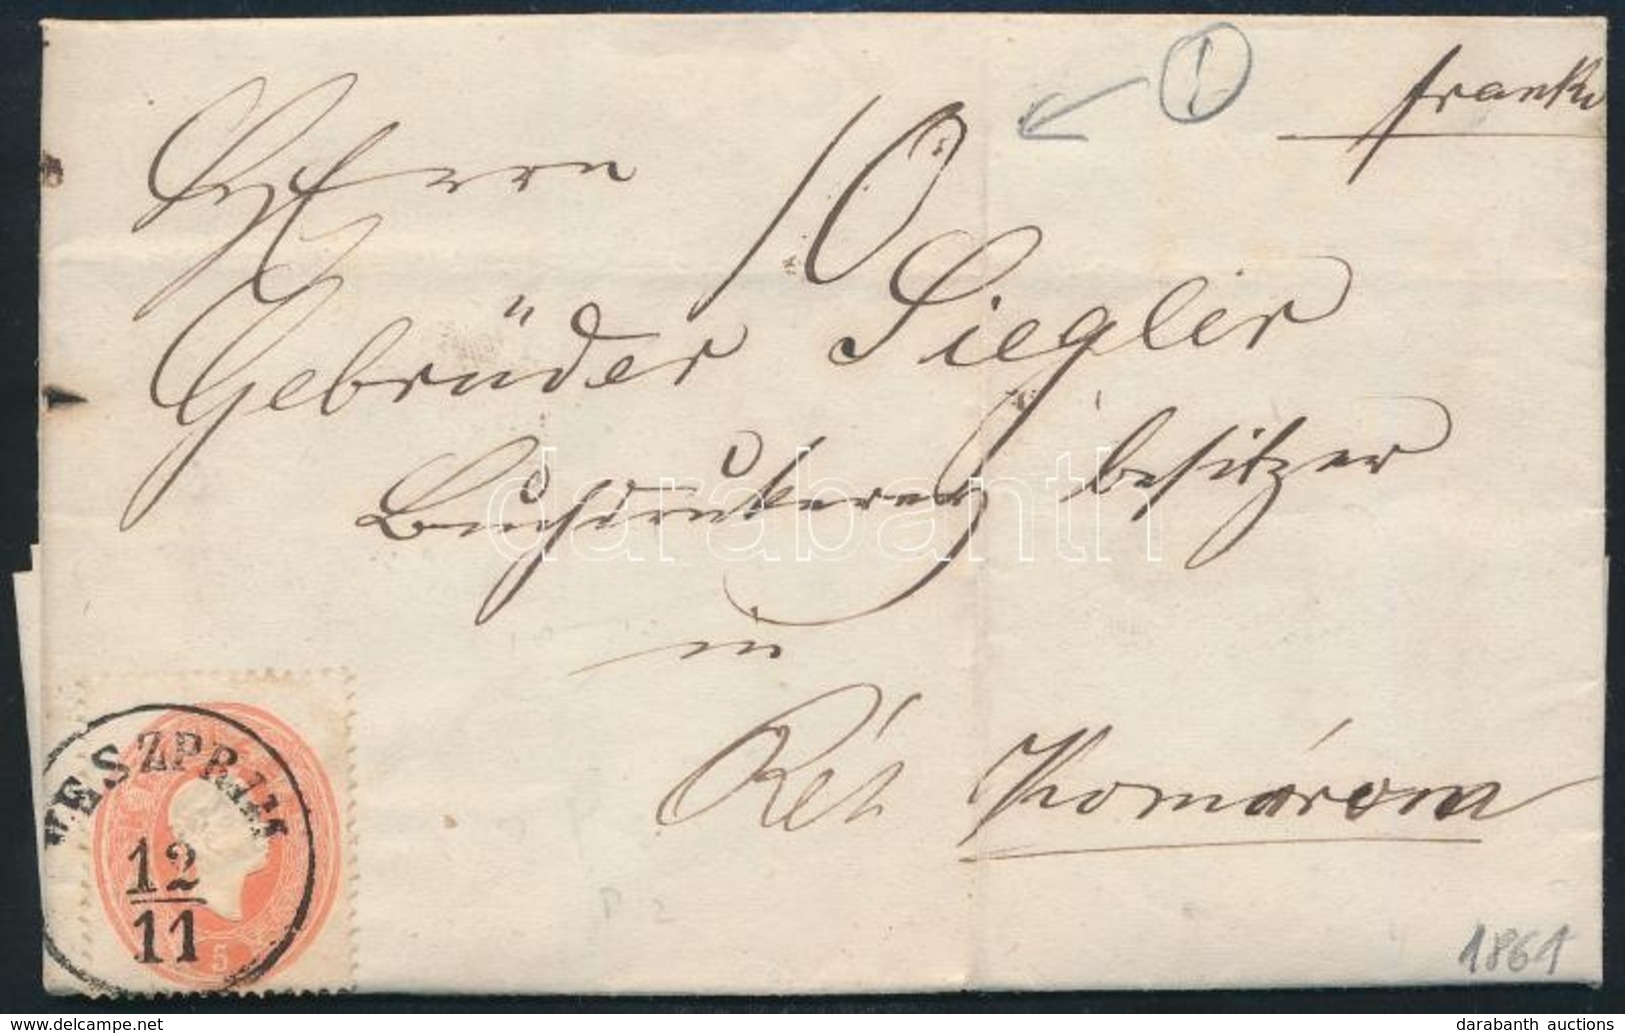 franko
Herrn 10
Gebrüder Siegler
Buchdrukerei besitzer
in
Rév Komárom
VESZPRIM
12
11
5
P 2
1861
darabanth
delcampe.net
darabanth auctions